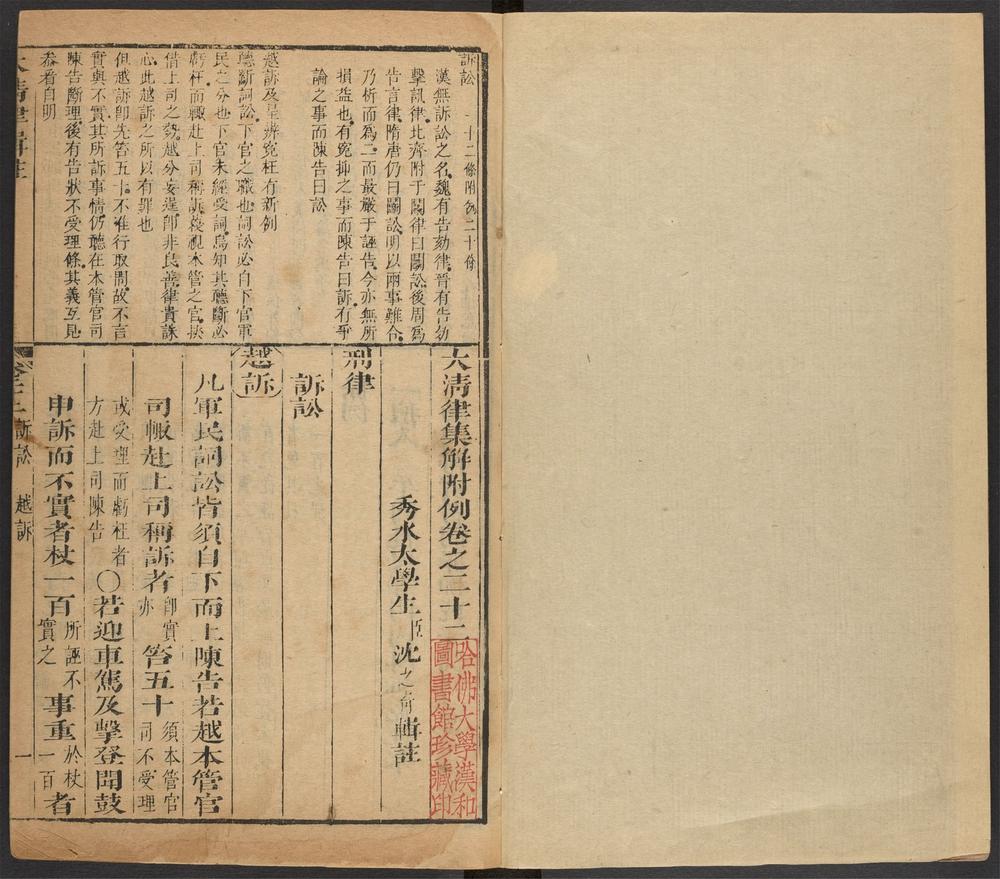 訴訟 一十二條附例二十條
漢無訴訟之名魏有告劾律晉有告劾
擊訊律北齊附于鬬律曰鬬訟後周為
告言律隋唐仍曰鬬訟明以兩事難合
乃析而為二而最嚴于誣告今亦無所
損益也有冤抑之事而陳告曰訴有爭
論之事而陳告曰訟
越訴及呈辨冤枉有新例
聽斷詞訟下官之職也詞訟必自下官軍
民之分也下官未經受詞烏知其聽斷必
虧枉而輒赴上司稱訴藐視本管之官挾
借上司之勢越分妄逞即非良善律貴誅
心此越訴之所以有罪也
但越訴即先笞五十不准行取問故不言
實與不實其所訴事情仍聽在本管官司
陳告斷理後有告狀不受理條其義互見
叅看自明
大清律集解附例卷之二十二
秀水太學生臣沈之奇輯註
刑律
訴訟
越訴
凡軍民詞訟皆須自下而上陳告若越本管官
司輒赴上司稱訴者即實亦笞五十須本管官司不受理
或受理而虧枉者方赴上司陳告〇若迎車駕及擊登聞鼓
申訴而不實者杖一百所誣不實之事重於杖一百者
大清律輯註
訴訟 越訴 一
哈佛大學漢和
圖書館珍藏印